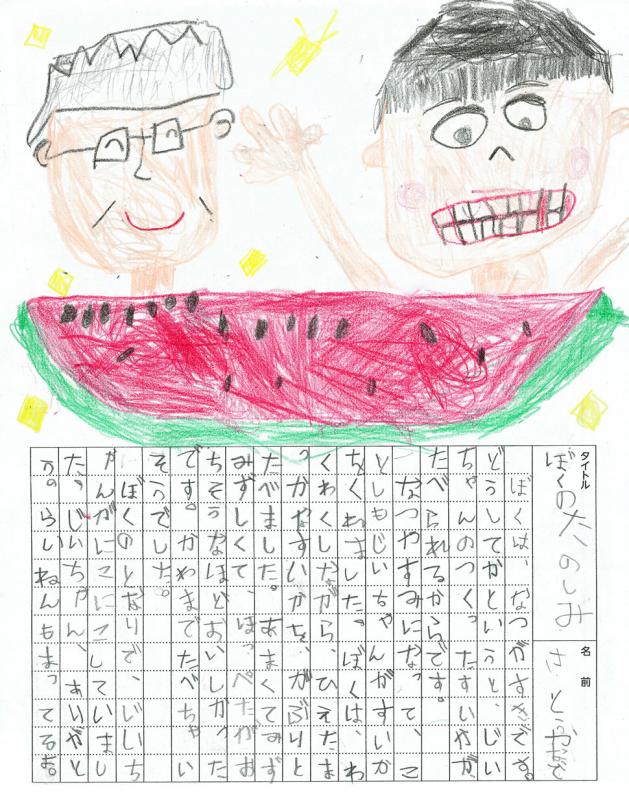 タイトル
ぼくのたのしみ
名前
さとう
ぼくは、なつがすきです。
どうしてかというと、じい
ちゃんのつくったすいかが
たべられるからです。
なつやすみになって、こ
としもじいちゃんがすいか
をくれました。ぼくは、わ
くわくしながら、ひえたま
っかなすいかを、がぶりと
たべました。あまくてみず
みずしくて、ほっぺたがお
ちそうなほどおいしかった
です。かわまでたべちゃい
そうでした。
ぼくのとなりで、じいち
ゃんがにこにこしていまし
た。じいちゃん、ありがと
う。らいねんもまってるよ。